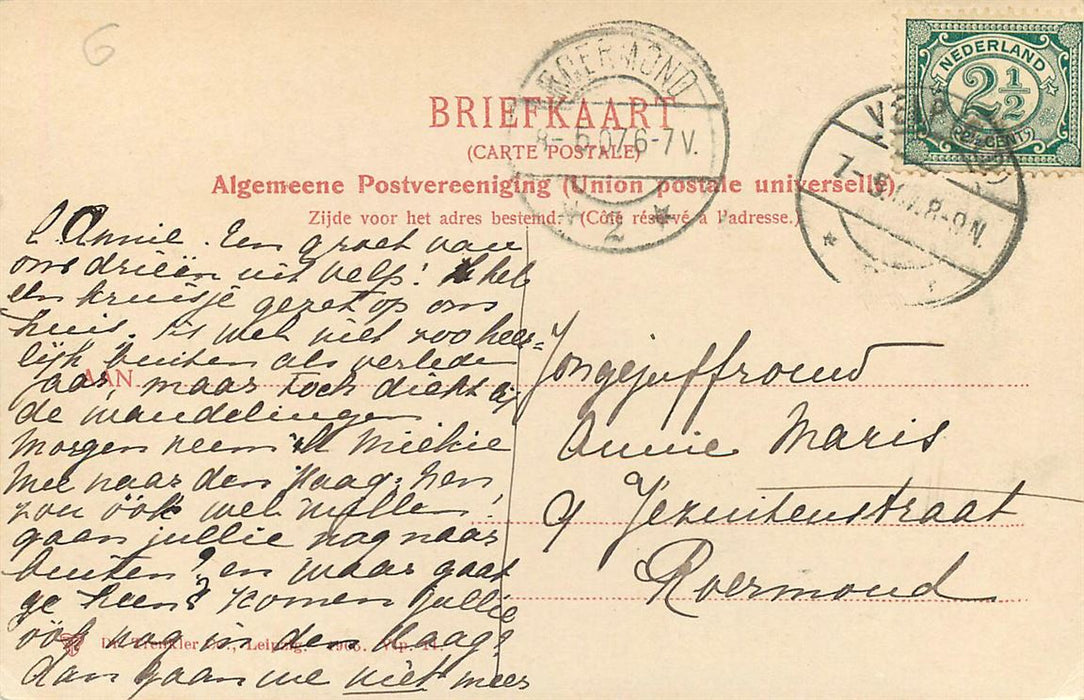 NEDERLAND
2½
CENT
ROERMOND
8-5.07.6-7V.
2
VELP
7-5.07.8-9N.
BRIEFKAART
(CARTE POSTALE)
Algemeene Postvereeniging (Union postale universelle)
Zijde voor het adres bestemd. (Côté réservé à l'adresse.)
AAN
L. Annie. Een groet van
ons drieën uit Velp! Ik heb
een kruisje gezet op ons
huis. Is wel niet zoo heer=
lijk buiten als verleden
jaar, maar toch dicht bij
de wandelingen
Morgen neem ik Miekie
mee naar den Haag,
zou óók wel willen!
gaan jullie nog naar
buiten? en waar gaat
ge heen? Komen jullie
óók nog in den Haag?
dan gaan we niet meer
Jongejuffrouw
Annie Maris
Jezuitenstraat
Roermond
Dr. Trenkler Co., Leipzig. 1906. Vlp. 11.
6